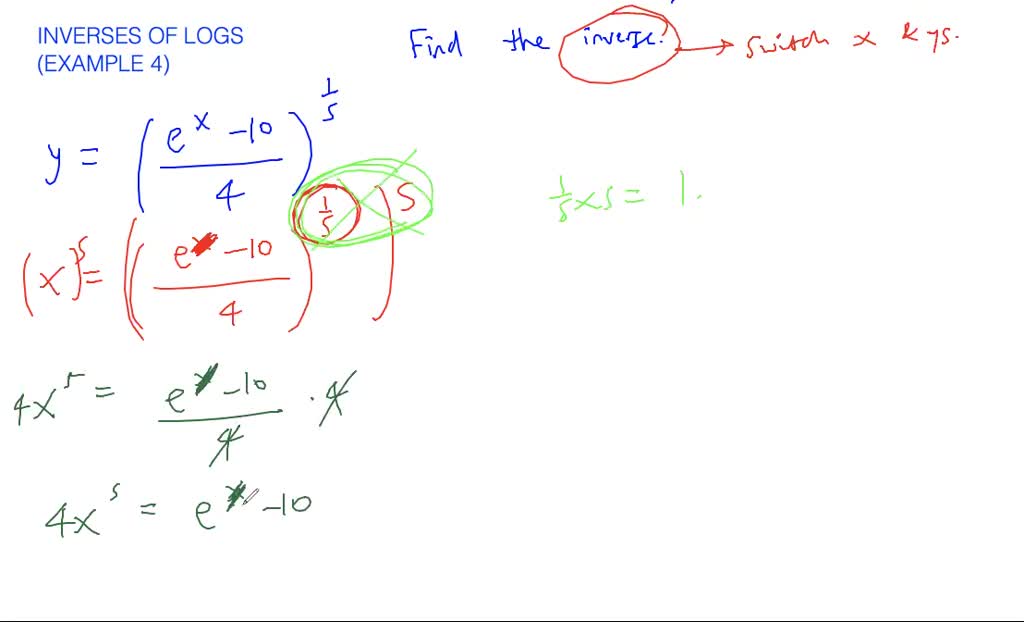 INVERSES OF LOGS
(EXAMPLE 4)
Find the inverse. → switch x & ys.
y = ((e^x - 10)/4)^(1/5)
(x)^5 = (((e - 10)/4)^(1/5))^5
1/5 x 5 = 1.
4x^5 = (e - 10)/4 · 4
4x^5 = e - 10